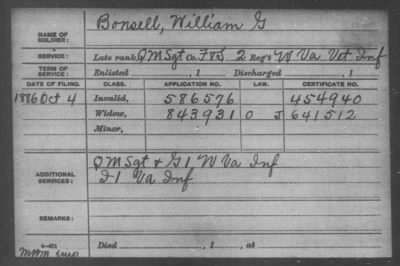 NAME OF SOLDIER: Bonsell, William G
SERVICE: Late rank, Q M Sgt Co. F & S 2 Reg't W Va Vet Inf
TERM OF SERVICE: Enlisted , 1 Discharged , 1
DATE OF FILING. CLASS. APPLICATION NO. LAW. CERTIFICATE NO.
1886 Oct 4 Invalid, 586576 454940
Widow, 843931 O J 641512
Minor,
ADDITIONAL SERVICES: Q M Sgt & G 1 W Va Inf
I 1 Va Inf
REMARKS:
Died , 1 , at